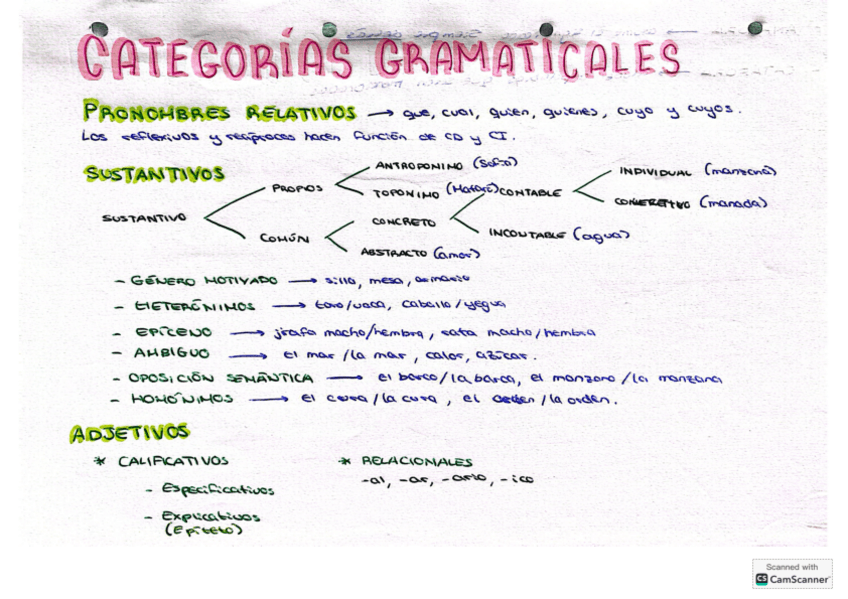 CATEGORÍAS GRAMATICALES
PRONOMBRES RELATIVOS → que, cual, quien, quienes, cuyo y cuyos.
Los reflexivos y recíprocos hacen función de CD y CI.
SUSTANTIVOS
SUSTANTIVO
PROPIOS
ANTROPONIMO (Sofía)
TOPONIMO (Mataró)
COMÚN
CONCRETO
CONTABLE
INDIVIDUAL (manzana)
(manada)
INCONTABLE (agua)
ABSTRACTO (amor)
- GÉNERO MOTIVADO → silla, mesa, armario
- HETERÓNIMOS → toro/vaca, caballo/yegua
- EPICENO → jirafa macho/hembra, rata macho/hembra
- AMBIGUO → el mar/la mar, calor, azúcar.
- OPOSICIÓN SEMÁNTICA → el barco/la barca, el manzano/la manzana
- HOMÓNIMOS → el cura/la cura, el orden/la orden.
ADJETIVOS
* CALIFICATIVOS
- Especificativos
- Explicativos
(Epíteto)
* RELACIONALES
-al, -ar, -ario, -ico
Scanned with
CS CamScanner